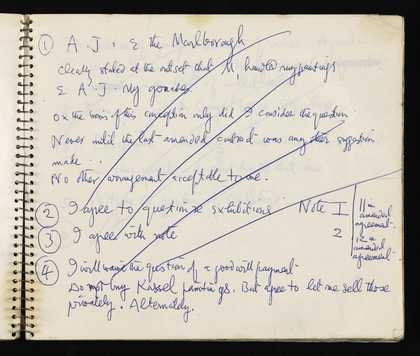 ① A.J. & the Marlborough
Clearly stated at the outset that M, handled my paintings
& A.J. my gouaches.
On the basis of this conception only did I consider the question.
Never until the last amended contract was any other suggestion
made..
No other arrangement acceptable to me.
② I agree to question re exhibitions Note I 11 in amended agreement.
③ I agree with note 2 12 in amended agreement
④ I will waive the question of a goodwill payment.
Do not buy Kassel paintings. But agree to let me sell those
privately. Alternately.